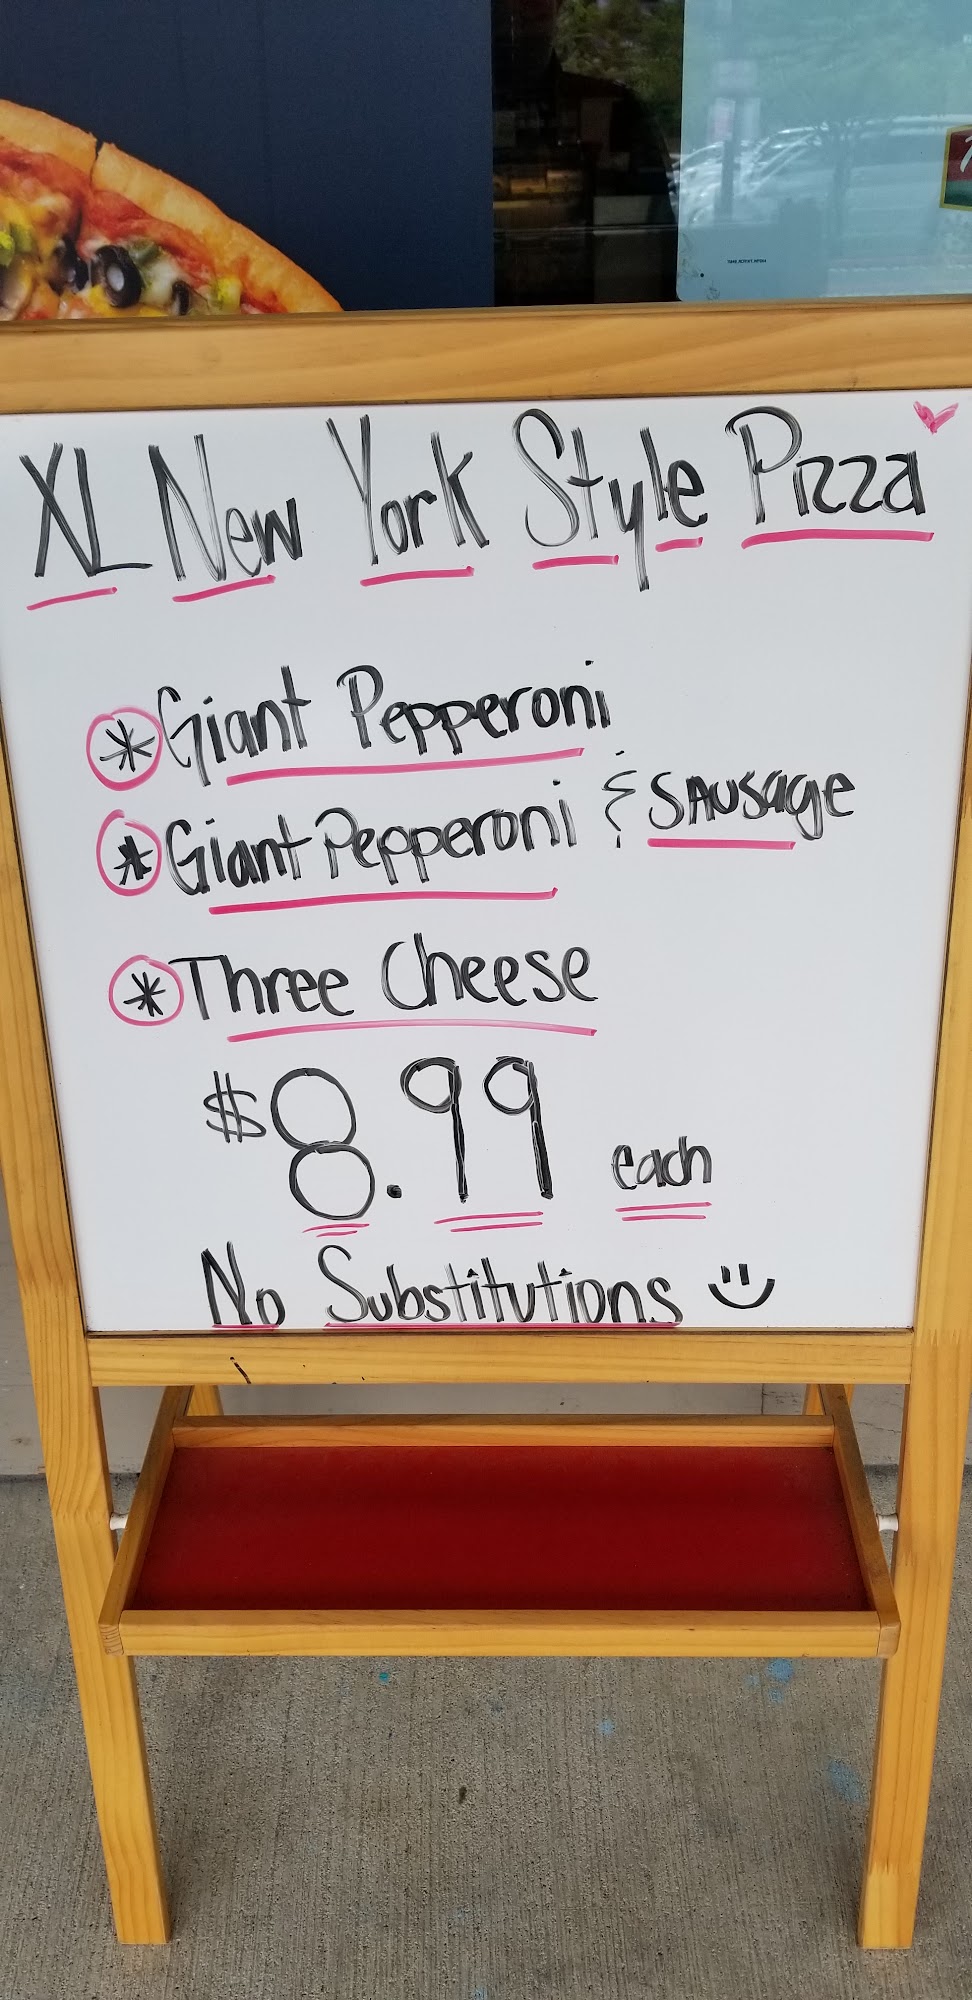 XL New York Style Pizza
* Giant Pepperoni
* Giant Pepperoni & Sausage
* Three Cheese
$8.99 each
No Substitutions